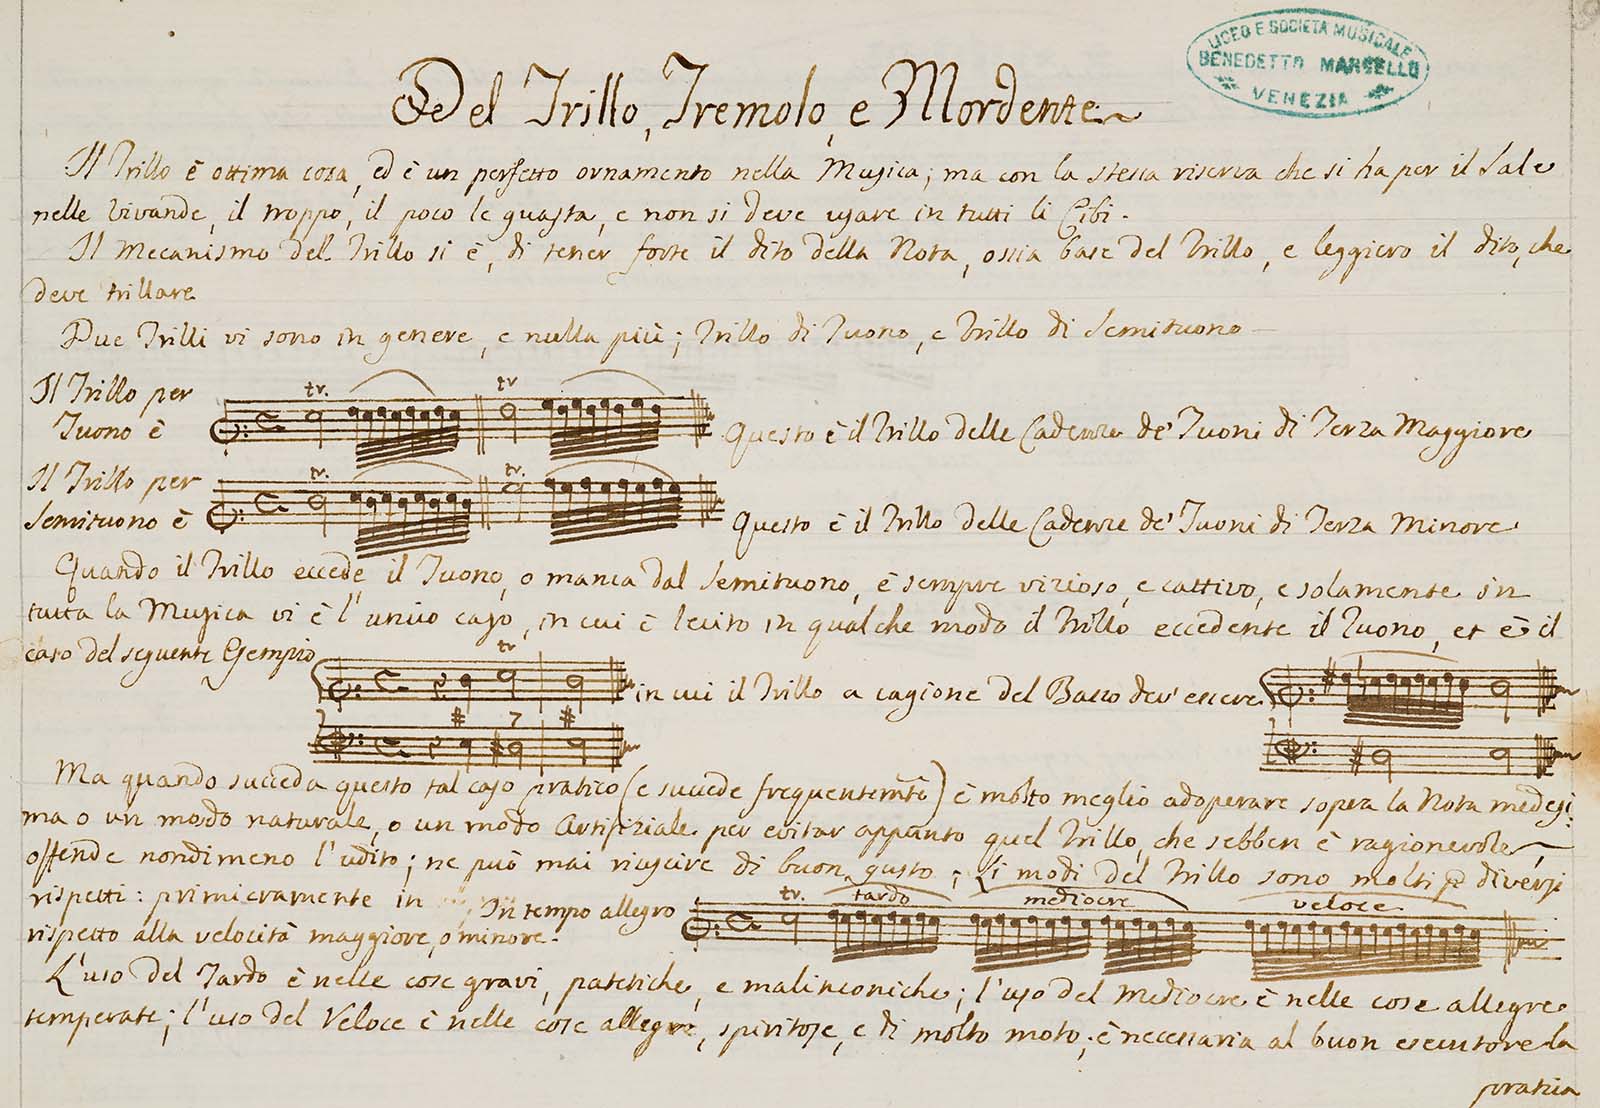 LICEO E SOCIETÀ MUSICALE
BENEDETTO MARCELLO
VENEZIA
Del Trillo, Tremolo, e Mordente
Il Trillo è ottima cosa, ed è un perfetto ornamento nella Musica; ma con la stessa riserva che si ha per il Sale
nelle vivande, il troppo, il poco le guasta, e non si deve usare in tutti li Cibi.
Il Mecanismo del Trillo si è, di tener forte il dito della Nota, ossia base del Trillo, e leggiero il dito, che
deve trillare
Due Trilli vi sono in genere, e nulla più; Trillo di Tuono, e Trillo di Semituono
Il Trillo per
Tuono è
tr. tr
Questo è il Trillo delle Cadenze de' Tuoni di Terza Maggiore
Il Trillo per
Semituono è
tr. tr.
Questo è il Trillo delle Cadenze de' Tuoni di Terza Minore
Quando il Trillo eccede il Tuono, o manca dal Semituono, è sempre vizioso, e cattivo, e solamente in
tutta la Musica vi è l'unico caso, in cui è lecito in qualche modo il Trillo eccedente il Tuono, et è il
caso del seguente Esempio
tr
in cui il Trillo a cagione del Basso dev'essere
7
Ma quando succeda questo tal caso pratico (e succede frequentemte) è molto meglio adoperare sopra la Nota medesi:
ma o un modo naturale, o un modo Artifiziale per evitar appunto quel Trillo, che sebben è ragionevole,
offende nondimeno l'udito; ne può mai riuscire di buon gusto; Li modi del Trillo sono molti p diversi
rispetti: primieramente in
In tempo allegro
tr. tardo mediocre veloce
rispetto alla velocità maggiore, o minore.
L'uso del Tardo è nelle cose gravi, patetiche, e malinconiche; l'uso del mediocre è nelle cose allegre
temperate; l'uso del Veloce è nelle cose allegre, spiritose, e di molto moto; è necessaria al buon esecutore la
pratica